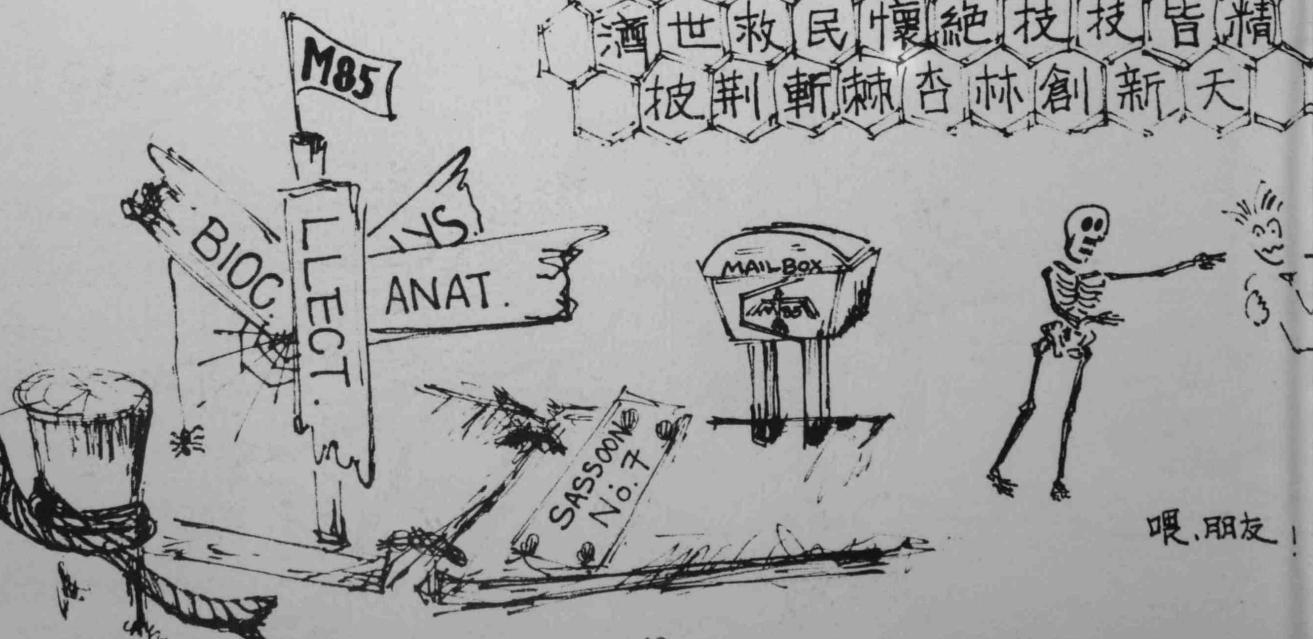 濟世救民懷絕技技皆精
披荊斬棘杏林創新天
M85
BIOC.
LLECT.
YS.
ANAT.
MAIL BOX
SASSOON
No. 7
喂、朋友！